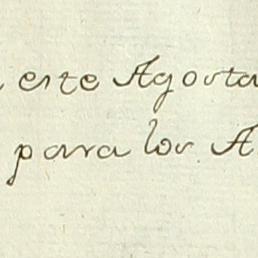 este Agosta
para los A